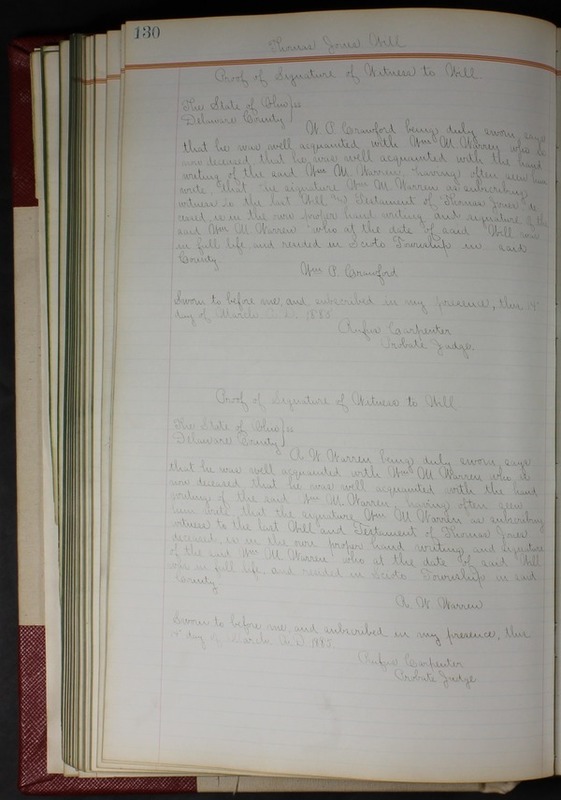 130
Thomas Jones Will
Proof of Signature of Witness to Will
The State of Ohio } ss
Delaware County }
W. P. Crawford being duly sworn, says
that he was well acquainted with Wm M. Warren who is
now deceased, that he was well acquainted with the hand
writing of the said Wm M. Warren, having often seen him
write, that the signature Wm M. Warren as subscribing
witness to the last Will and Testament of Thomas Jones de
ceased, is in the own proper hand writing and signature of the
said Wm M Warren who at the date of said Will was
in full life and resided in Scioto Township in said
County.
Wm P. Crawford
Sworn to before me, and subscribed in my presence, this 14"
day of March A. D. 1885
Rufus Carpenter
Probate Judge.
Proof of Signature of Witness to Will
The State of Ohio } ss
Delaware County }
A W Warren being duly sworn, says
that he was well acquainted with Wm M. Warren who is
now deceased that he was well acquainted with the hand
writing of the said Wm M. Warren having often seen
him write that the signature Wm M Warren as subscribing
witness to the last Will and Testament of Thomas Jones
deceased, is in the own proper hand writing and signature
of the said Wm M Warren who at the date of said Will
was in full life, and resided in Scioto Township in said
County.
A. W Warren
Sworn to before me, and subscribed in my presence, this
day of March A. D. 1885
Rufus Carpenter
Probate Judge